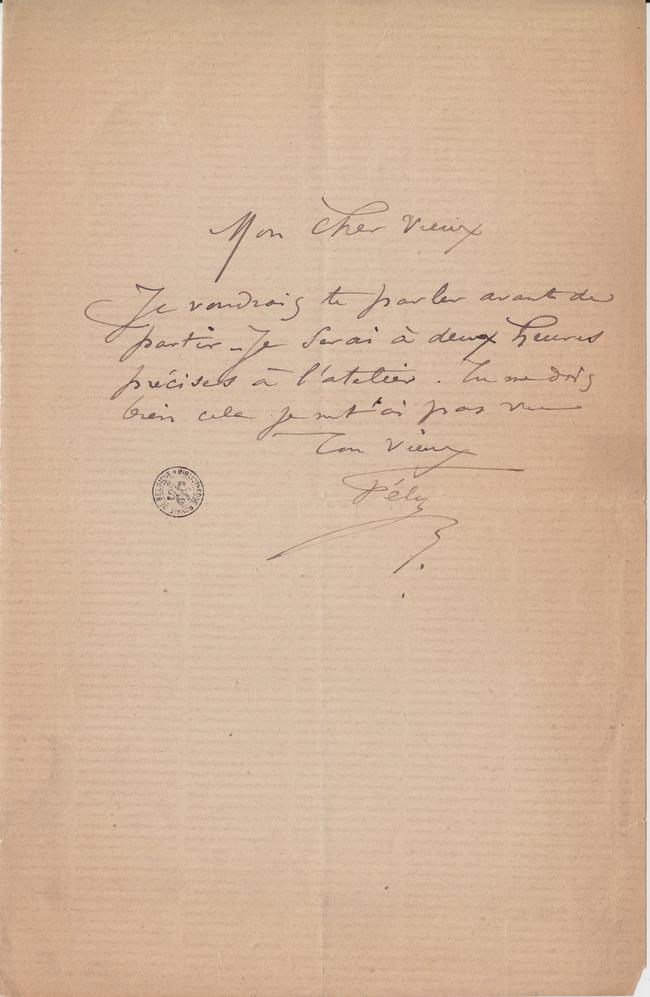 Mon cher vieux
Je voudrais te parler avant de
partir _ Je serai à deux heures
précises à l'atelier. Tu me dois
bien cela je ne t'ai pas vu
Ton vieux
Fély
BIBLIOTHÈQUE ROYALE DE BELGIQUE